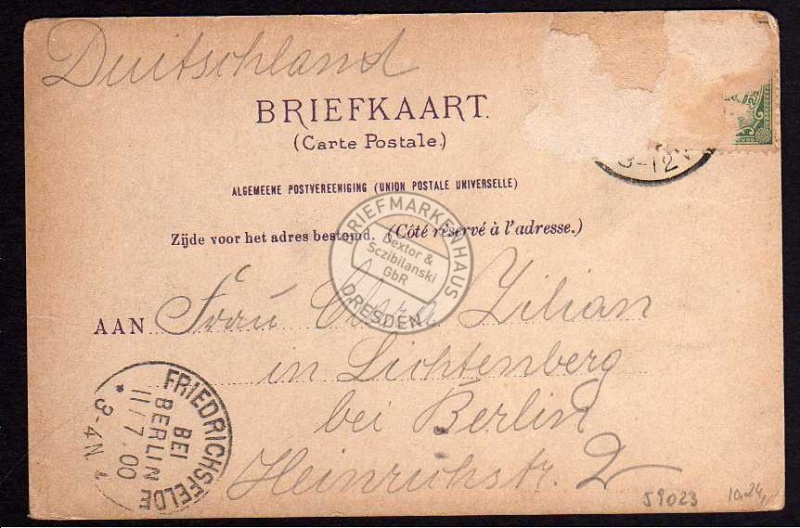 Duitschland
BRIEFKAART.
(Carte Postale.)
ALGEMEENE POSTVEREENIGING (UNION POSTALE UNIVERSELLE)
Zijde voor het adres bestemd. (Côté réservé à l'adresse.)
3-12V
BRIEFMARKENHAUS
Dextor &
Sczibilanski
GbR
DRESDEN
AAN Frau Clara Zilian
in Lichtenberg
bei Berlin
Heinrichstr. 2
FRIEDRICHSFELDE
BEI
BERLIN
11/7.00
3-4N.
59023